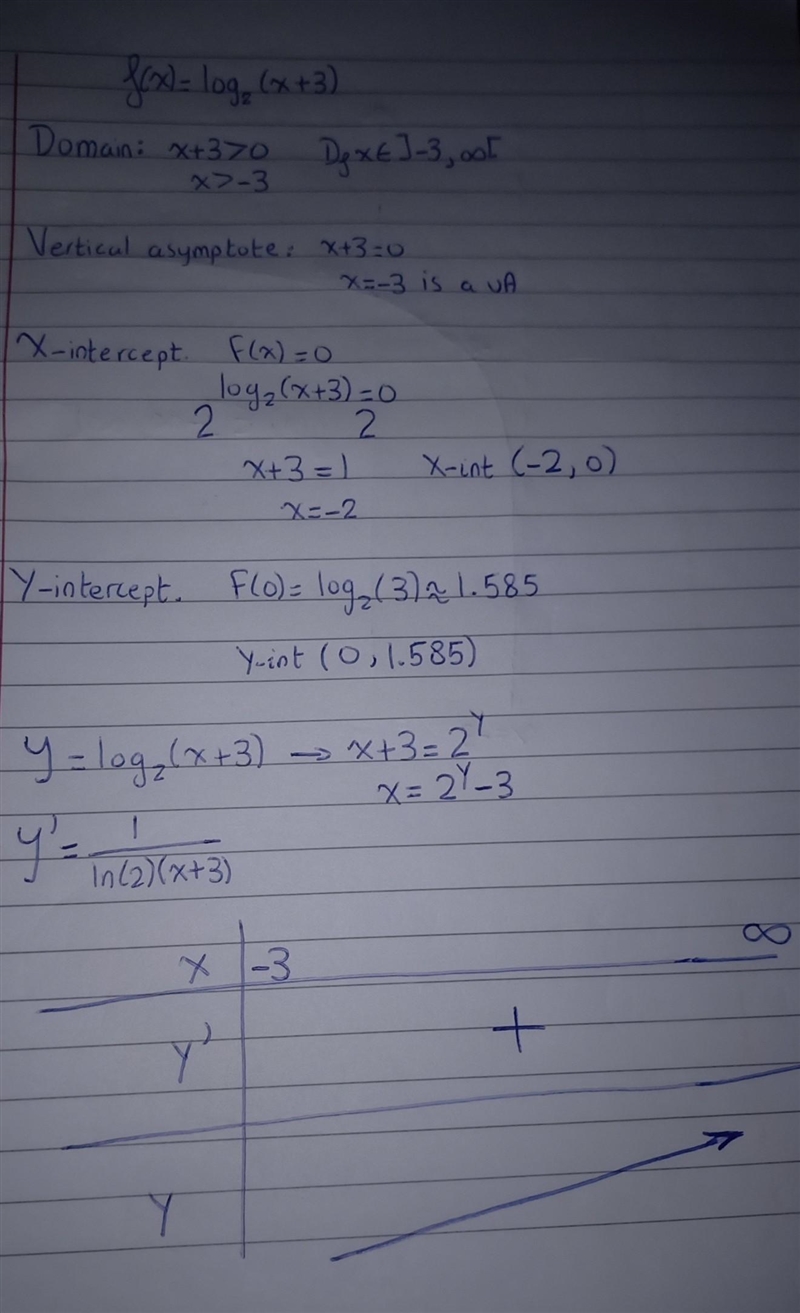 f(x)= log₂(x+3)
Domain: x+3>0 Df x∈]-3,∞[
x>-3
Vertical asymptote: x+3=0
x=-3 is a VA
X-intercept. F(x)=0
log₂(x+3)=0
2 2
x+3=1 X-int (-2,0)
x=-2
Y-intercept. F(0)= log₂(3)≈1.585
Y-int (0,1.585)
y=log₂(x+3) → x+3=2^y
x=2^y-3
y'= 1/ln(2)(x+3)
x -3 ∞
y' +
y